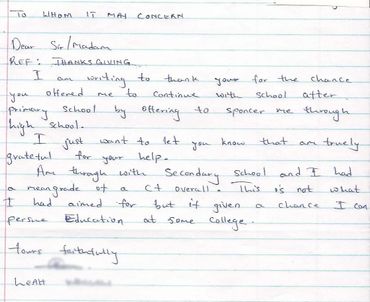 TO WHOM IT MAY CONCERN
Dear Sir/Madam
REF: THANKSGIVING
I am writing to thank your for the chance
you offered me to continue with school after
primary school by offering to sponcer me through
high school.
I just want to let you know that am truely
grateful for your help.
Am through with Secondary School and I had
a meangrade of a C+ overall. This is not what
I had aimed for but if given a chance I can
persue Education at some college.
Yours faithfully
LEAH